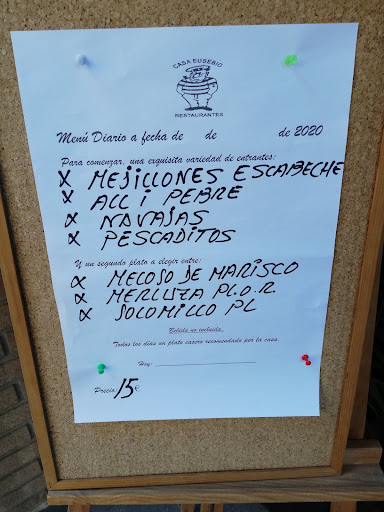 CASA EUSEBIO
RESTAURANTES
Menú Diario a fecha de de de 2020
Para comenzar, una exquisita variedad de entrantes:
X MEJILLONES ESCABECHE
X ALL i PEBRE
X NAVAJAS
X PESCADITOS
Y un segundo plato a elegir entre:
X MELOSO DE MARISCO
X MERLUZA PL.O.R.
X SOLOMILLO PL
Bebida no incluida.
Todos los días un plato casero recomendado por la casa.
Hoy:
Precio: 15€